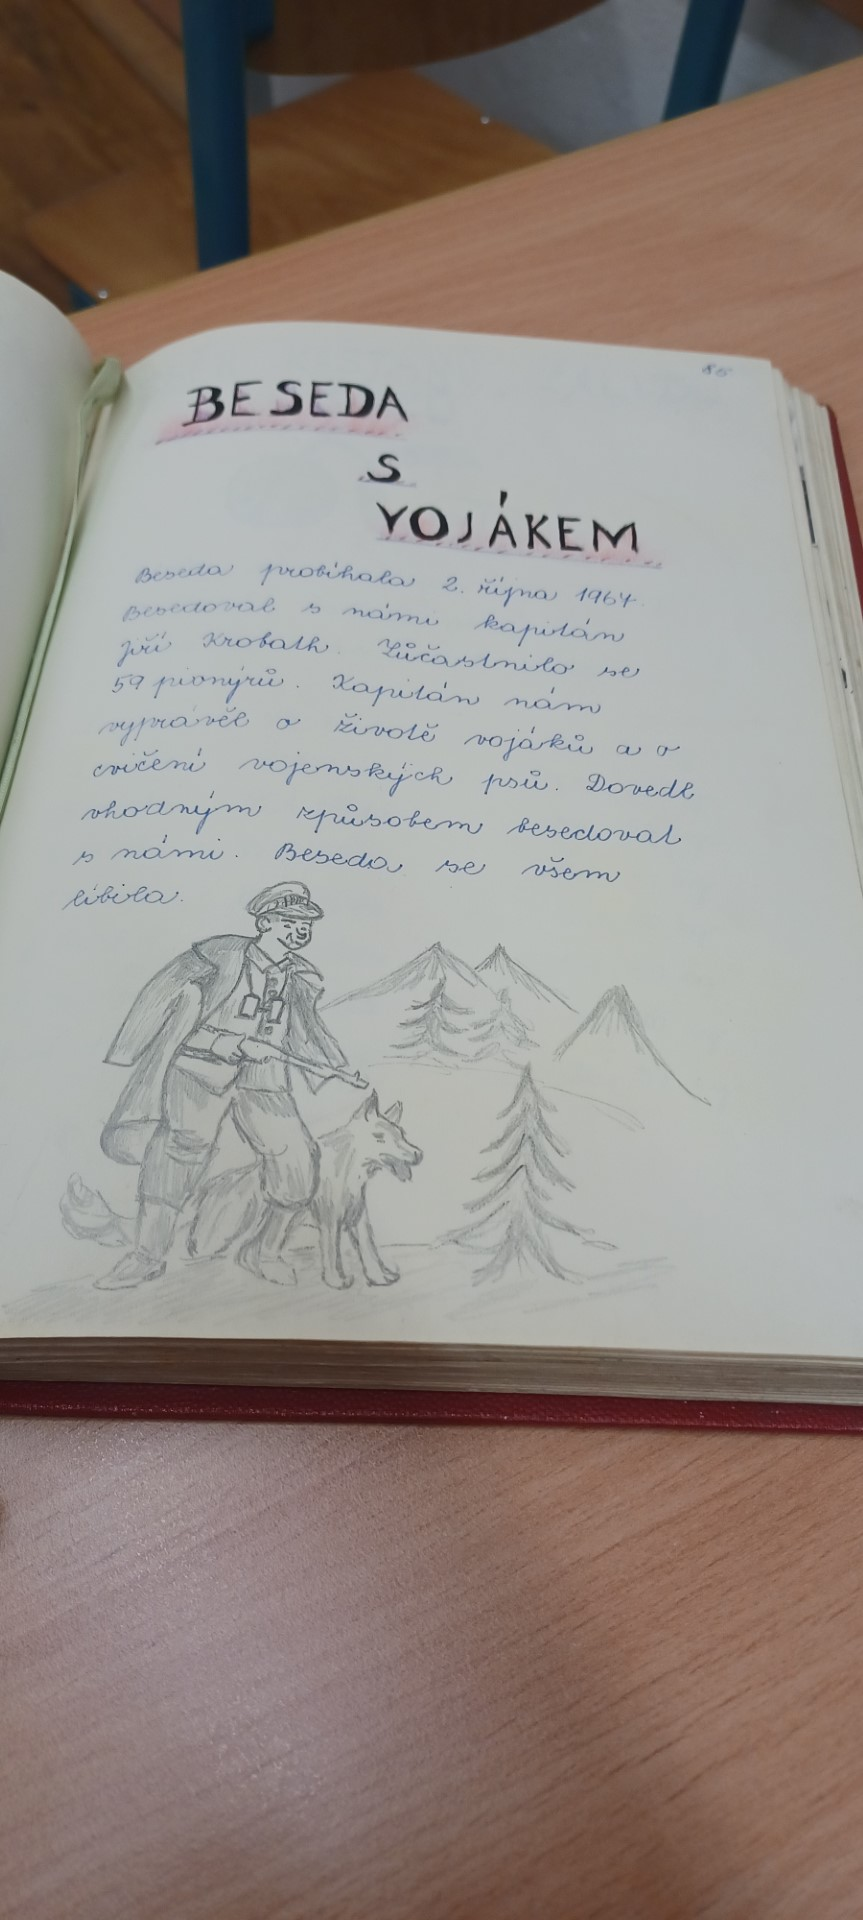 85
BESEDA
S
VOJÁKEM
Beseda probíhala 2. října 1964.
Besedoval s námi kapitán
Jiří Krobath. Zůčastnilo se
59 pionýrů. Kapitán nám
vyprávěl o životě vojáků a o
cvičení vojenských psů. Dovedl
vhodným způsobem besedovat
s námi. Beseda se všem
líbila.